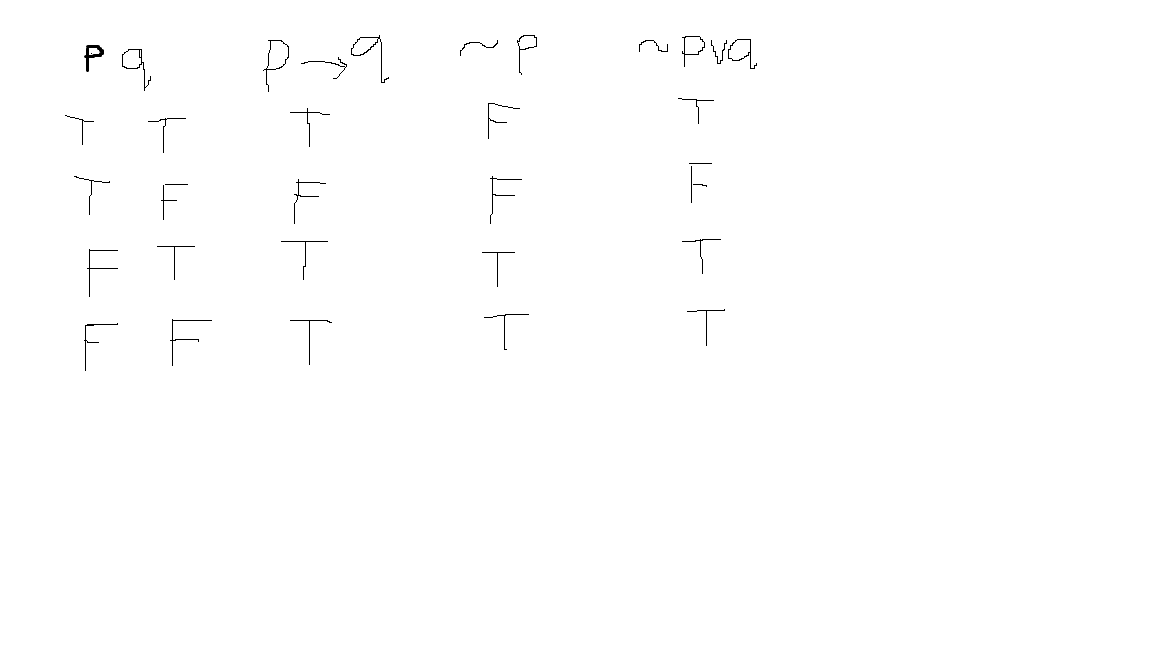 p q p → q ~ p ~ p ∨ q
T T T F T
T F F F F
F T T T T
F F T T T